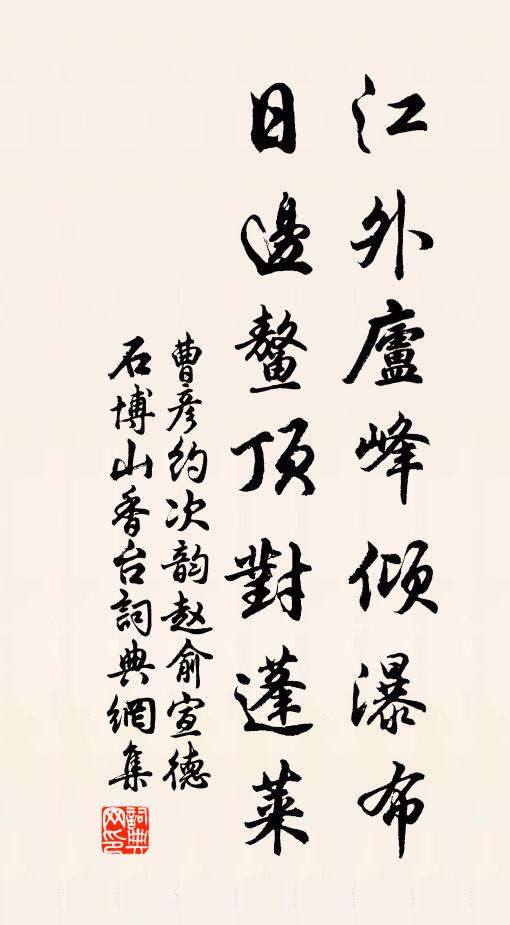 江外廬峰傾瀑布
日邊鼇頂對蓬萊
曹彥約次韵赵俞宣德
石博山香台詞典網集
詞典
网印